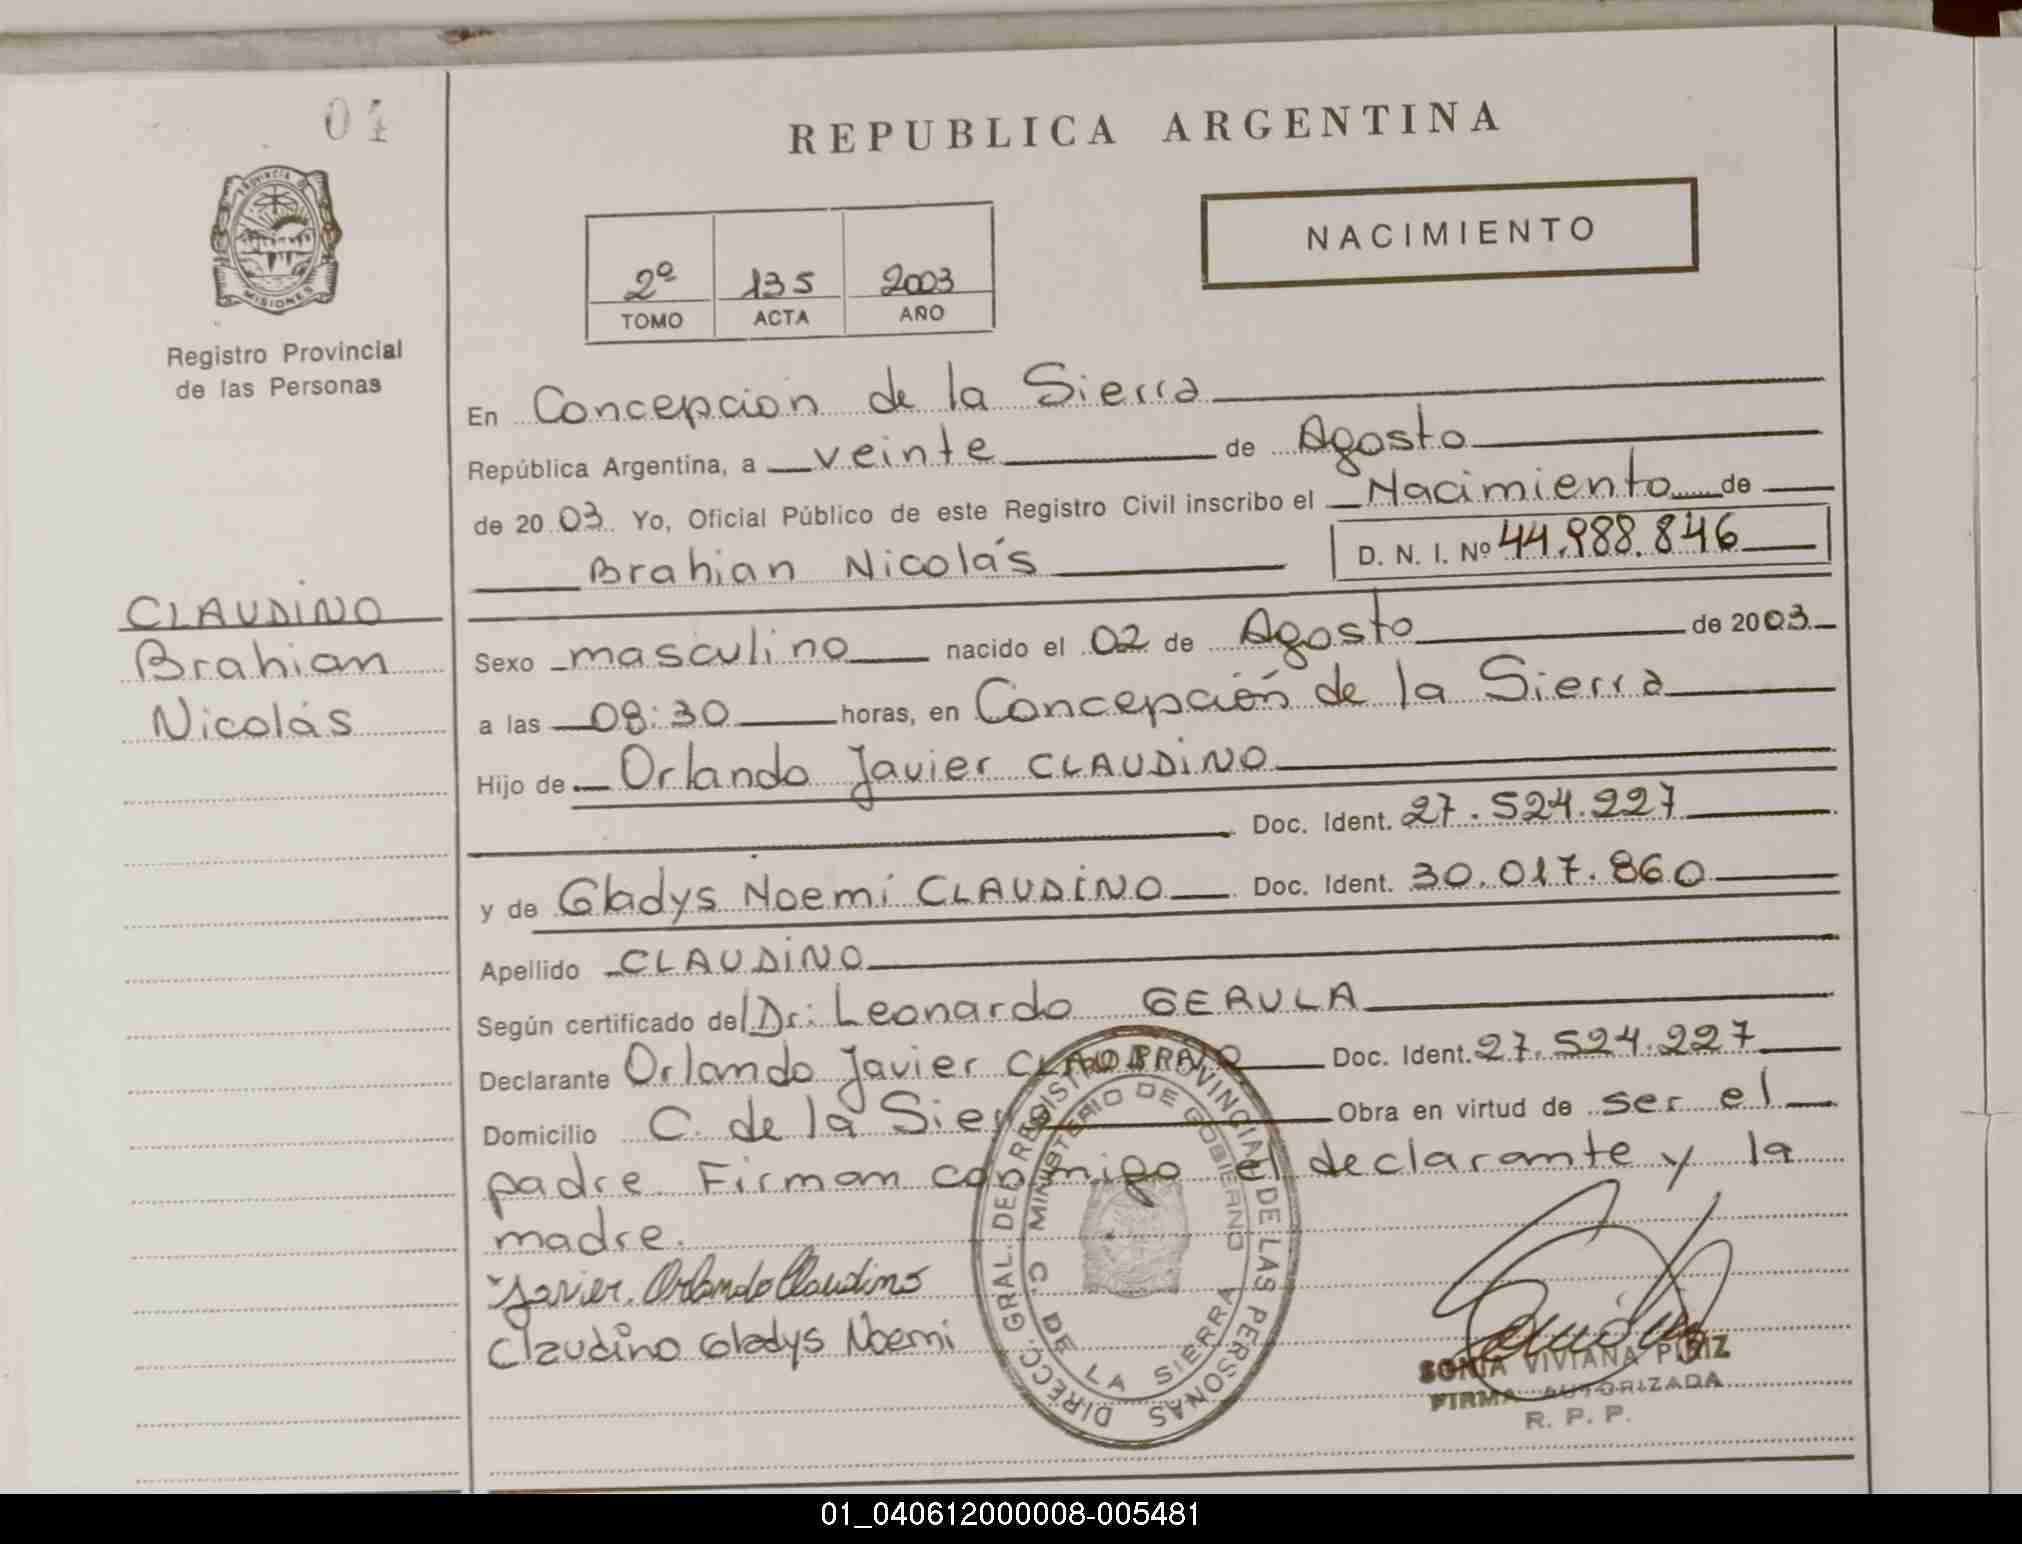 04
REPUBLICA ARGENTINA
PROVINCIA DE
MISIONES
Registro Provincial
de las Personas
NACIMIENTO
2º 135 2003
TOMO ACTA AÑO
En Concepcion de la Sierra
República Argentina, a veinte de Agosto
de 2003 Yo, Oficial Público de este Registro Civil inscribo el Nacimiento de
Brahian Nicolás D. N. I. Nº 44.988.846
CLAUDINO
Brahian
Nicolás
Sexo masculino nacido el 02 de Agosto de 2003
a las 08:30 horas, en Concepción de la Sierra
Hijo de Orlando Javier CLAUDINO
Doc. Ident. 27.524.227
y de Gladys Noemi CLAUDINO Doc. Ident. 30.017.860
Apellido CLAUDINO
Según certificado del Dr: Leonardo GERULA
Declarante Orlando Javier CLAUDINO Doc. Ident. 27.524.227
Domicilio C. de la Sierra Obra en virtud de ser el
padre. Firman conmigo el declarante y la
madre.
Javier Orlando Claudino
Claudino Gladys Noemi
DIRECC. GRAL. DEL REGISTRO PROVINCIAL DE LAS PERSONAS
MINISTERIO DE GOBIERNO
C. DE LA SIERRA
SONIA VIVIANA PIRIZ
FIRMA AUTORIZADA
R. P. P.
01_040612000008-005481